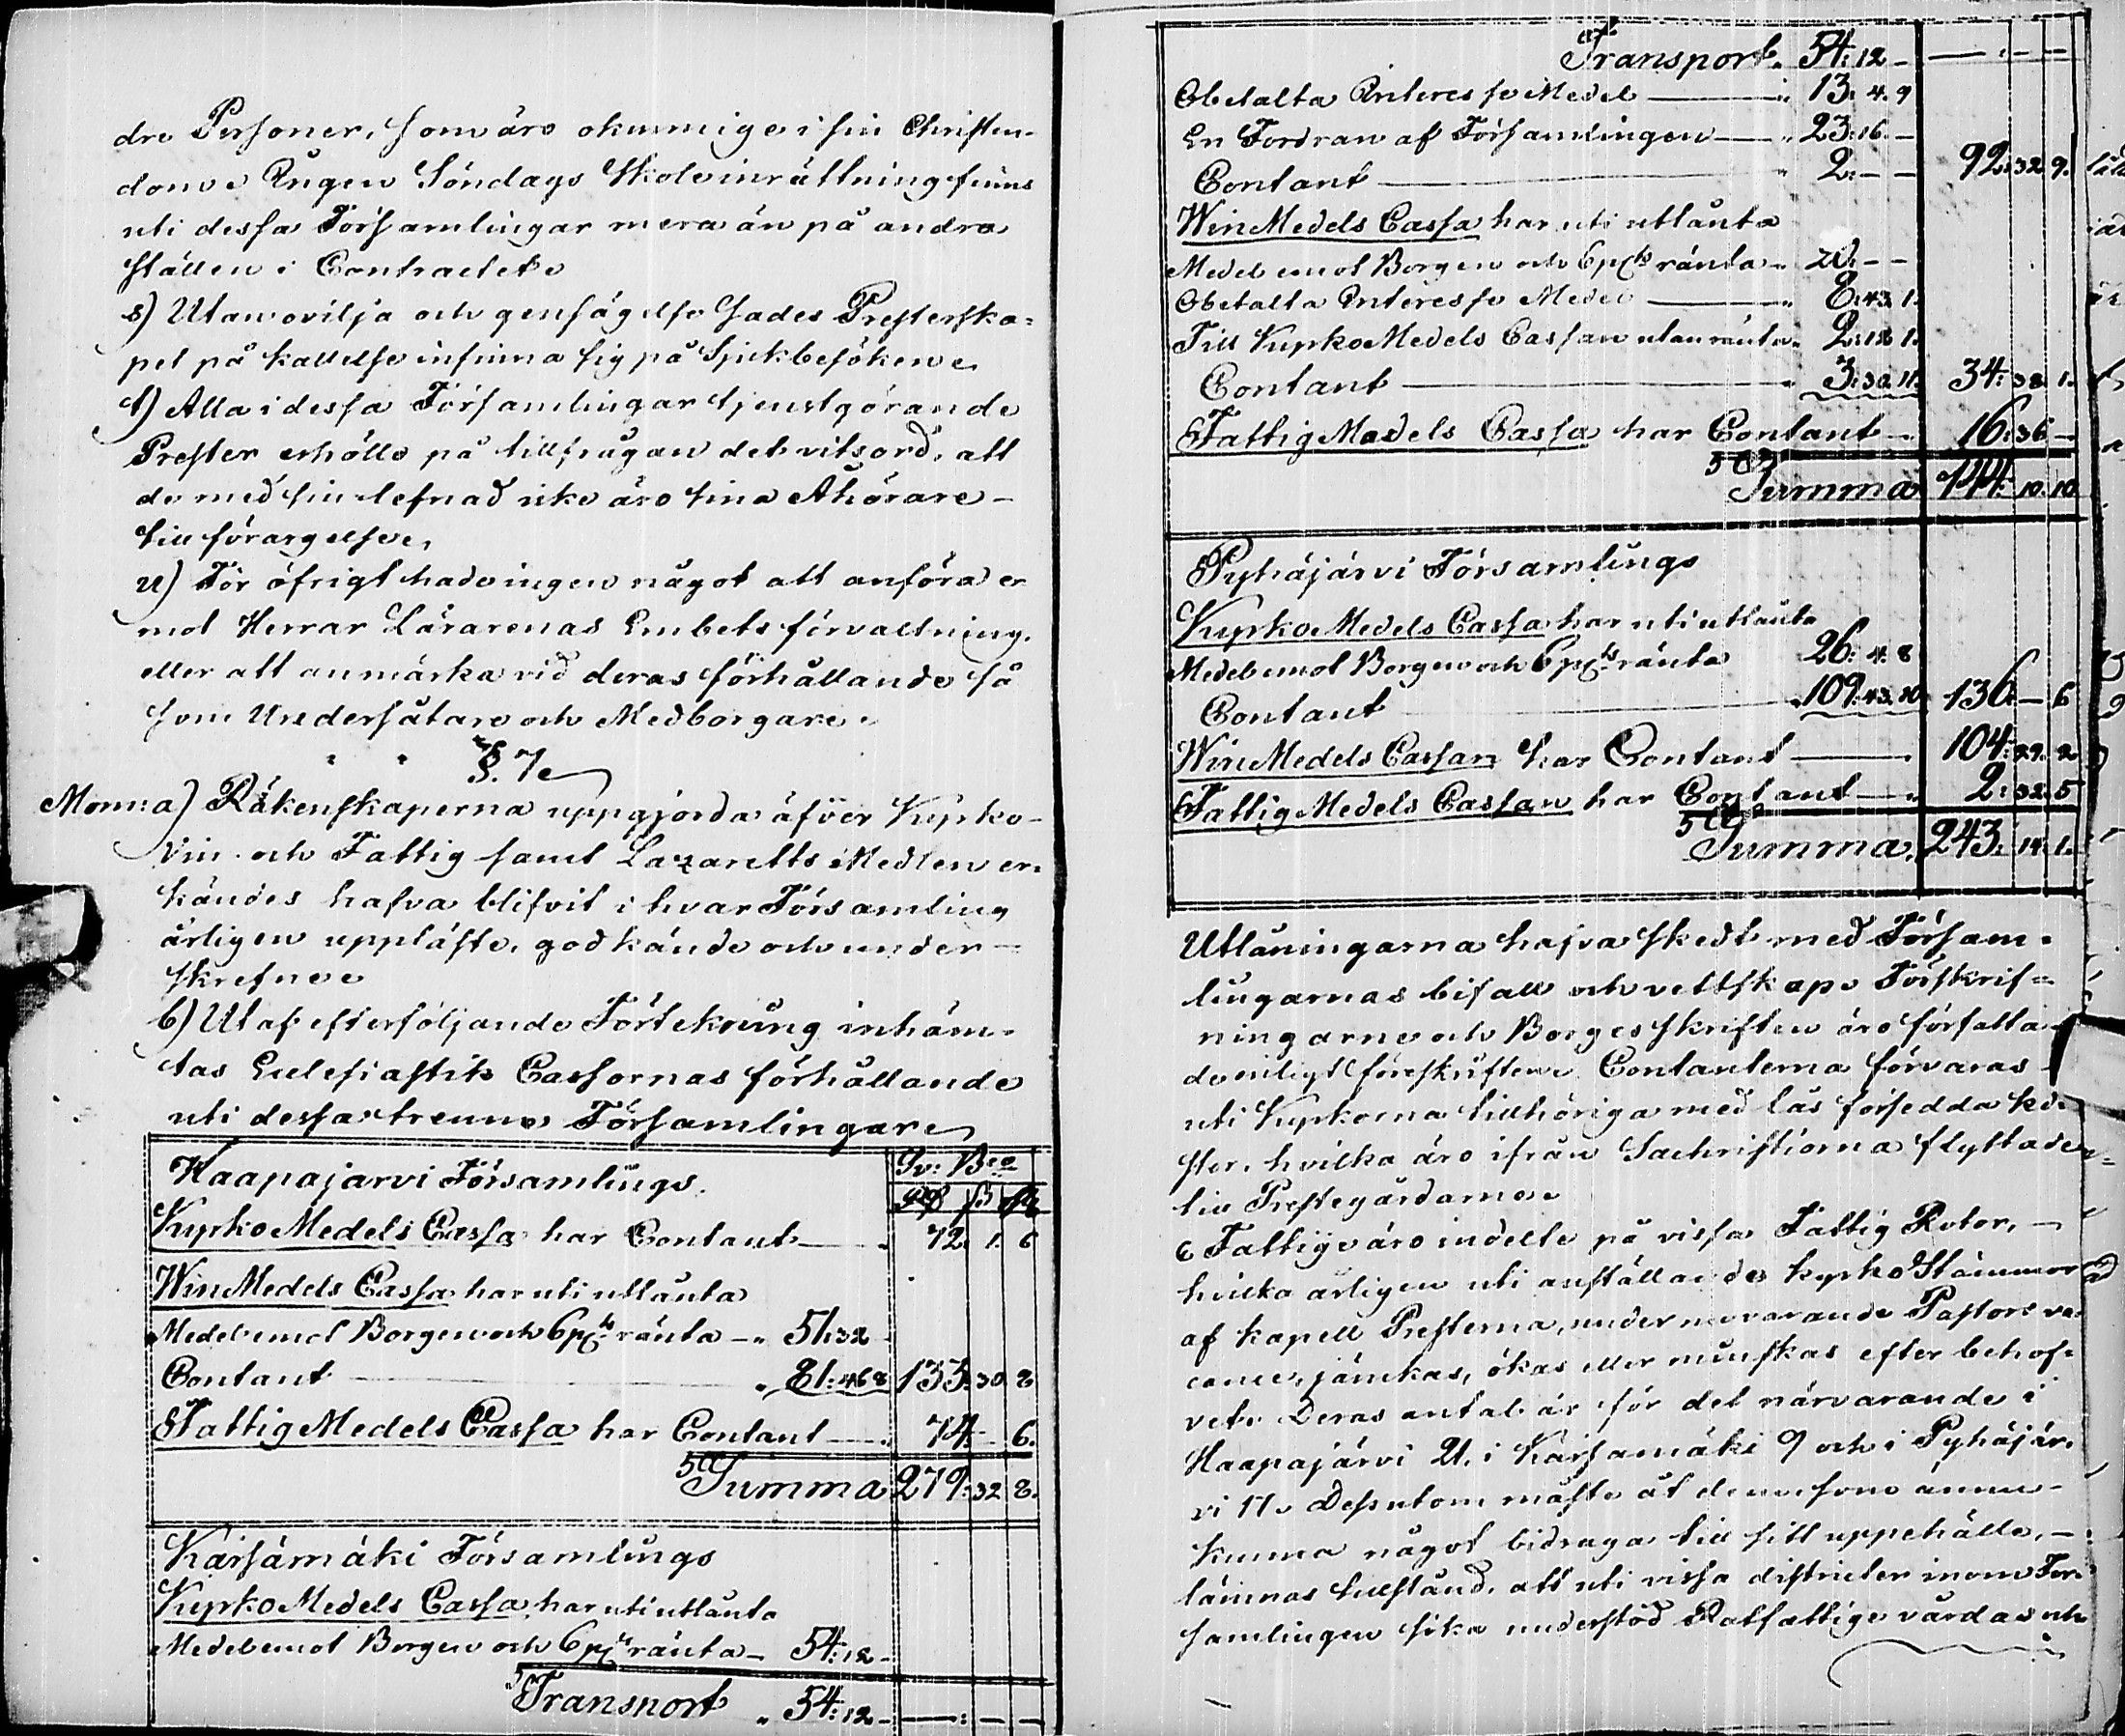 dre Personer, som äro okunnige i sin Christen-
dom. Ingen Söndags Skole inrättning finns
uti dessa Församlingar mera än på andra
ställen i Contractet.
s) Utan ovilja och gensägelse sades Presterska-
pet på kallelse infinna sig på Sjukbesöken.
t) Alla i dessa Församlingar tjenstgörande
Prester erhölls på tillfrågan det vitsord, att
de med sin lefnad icke äro sina Åhörare
till förargelse.
u) För öfrigt hade ingen något att anföra e-
mot Herrar Lärarenas Embets förvaltning,
eller att anmärka vid deras förhållande så
som Undersåtare och Medborgare.
§. 7.
Mom: a) Räkenskaperna uppgjorda öfver Kyrko-
Vin- och Fattig samt Lazaretts Medlen er-
kändes hafva blifvit i hvar Församling
årligen uppläste, godkände och under-
skrefne.
b) Utaf efterföljande Förtekning inhäm-
tas Ecclesiastik Cassornas förhållande
uti dessa trenne Församlingar.
Haapajarvi Församlings. Sv: Bco
Kyrko Medels Cassa har Contant 72. 1. 6
Win Medels Cassa har uti utlånta
Medel emot Borgen och 6 pCts ränta 51:32
Contant 81:46 8 133:30 8
Fattig Medels Cassa har Contant 74. - 6.
Summa 279:32 8.
Kärsämäki Församlings
Kyrko Medels Cassa har uti utlånta
Medel emot Borgen och 6 pCts ränta 54:12 -
Transport 54:12 -
Transport 54:12 -
Obetalta Interesse Medel 13. 4. 9
En Fordran af Församlingen 23:16. -
Contant 2. - - 92:32 9.
Win Medels Cassa har uti utlånta
Medel emot Borgen och 6 pCts ränta 20. - -
Obetalta Interesse Medel 8:43 1.
Till Kyrko Medels Cassan utan ränta 2:12 1.
Contant 3:30 11. 34:38 1.
Fattig Medels Cassa har Contant 16:36 -
Summa 144: 10. 10
Pyhäjärvi Församlings
Kyrko Medels Cassa har uti utlånta
Medel emot Borgen och 6 pCts ränta 26: 4. 8
Contant 109:43. 10 136. - 6
Win Medels Cassan har Contant 104:29. 2
Fattig Medels Cassan har Contant 2:32. 5
Summa. 243: 14. 1.
Utlåningarna hafva skedt med Försam-
lingarnas bifall och vettskap. Förskrif-
ningarne och Borges skriften äro författa-
de enligt föreskriften. Contanterna förvaras
uti Kyrkorna tillhöriga med lås försedda ki-
stor, hvilka äro ifrån Sachristiorna flyttade
till Prestegårdarne.
c Fattige äro indelte på vissa Fattig Rotor,
hvilka årligen uti anställande kyrko Stämmor
af kapell Presterna, under nuvarande Pastors va-
cance, jämkas, ökas eller minskas efter behof-
vet. Deras antal är för det närvarande i
Haapajärvi 21. i Kärsamäki 9 och i Pyhäjär-
vi 17. Dessutom måste åt dem som ännu
kunna något bidraga till sitt uppehälle,
lämnas tillstånd, att uti vissa districter inom För-
samlingen söka understöd. Ratfattige vårdas och